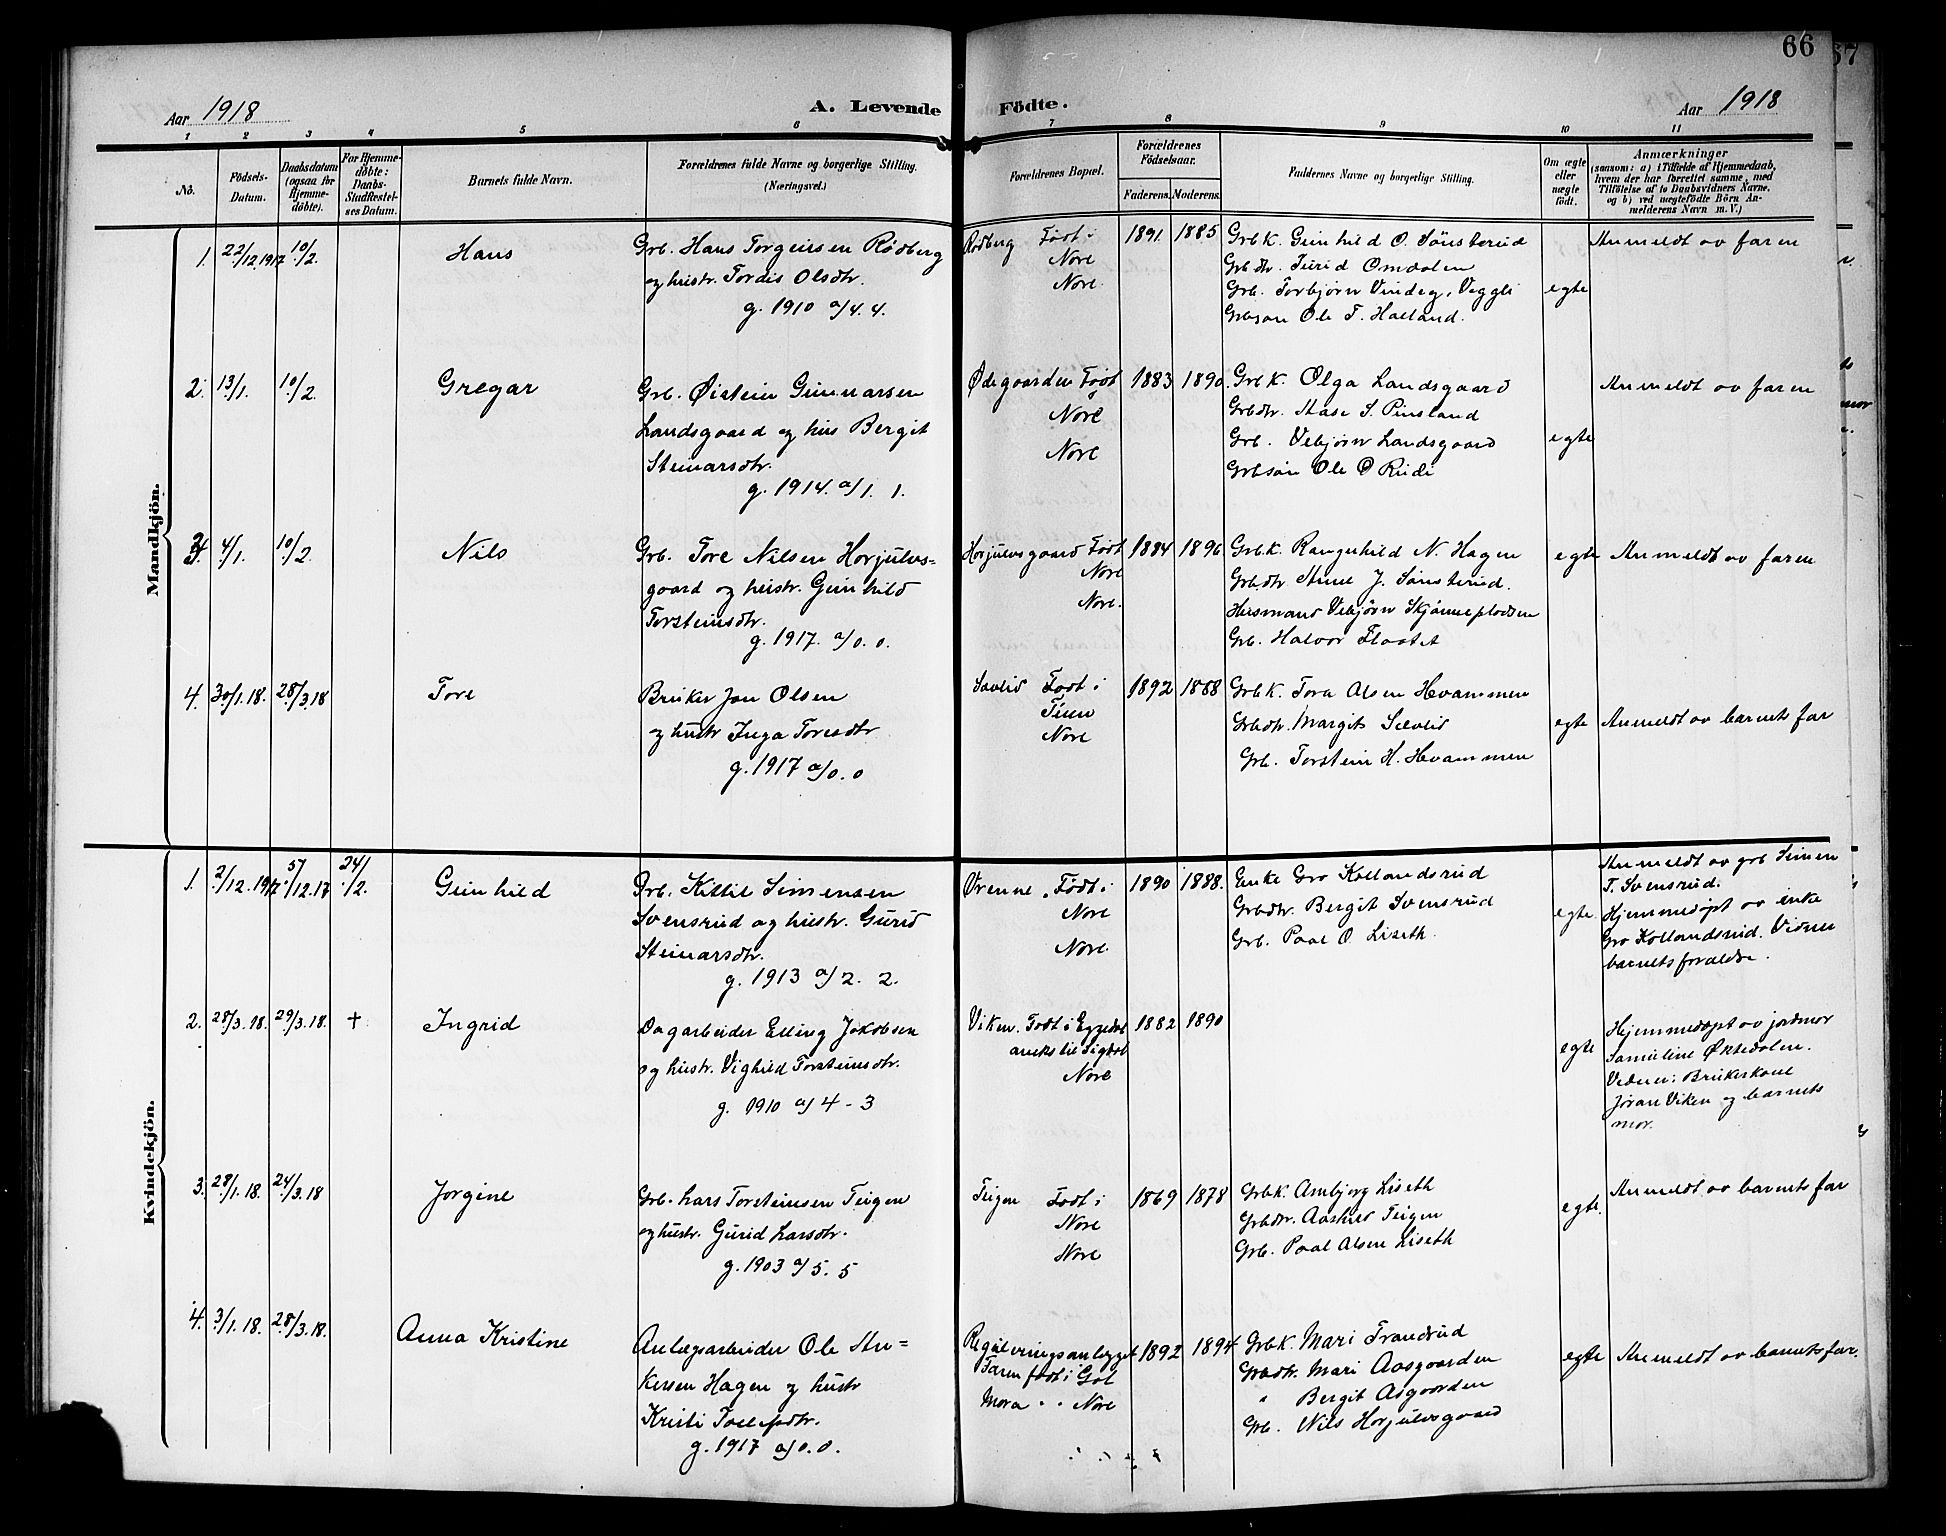 66
57
Aar 1918
A. Levende Födte.
Aar 1918
1 2 3 4 5 6 7 8 9 10 11
No.
Födsels-Datum.
Daabsdatum (ogsaa for Hjemme-døbte).
For Hjemme-døbte: Daabs-Stadfæstel-ses Datum.
Barnets fulde Navn.
Forældrenes fulde Navne og borgerlige Stilling.
(Næringsvei.)
Forældrenes Bopæl.
Forældrenes Födselsaar.
Faderens. Moderens.
Faddernes Navne og borgerlige Stilling.
Om ægte eller uægte födt.
Anmærkninger
(saasom: a) i Tilfælde af Hjemmedaab,
hvem der har forrettet samme, med
Tilföielse af to Daabsvidners Navne,
og b) ved uægtefödte Börn An-
melderens Navn m. V.)
Mandkjön.
1. 22/12.1917 10/2. Hans
Grb. Hans Torgeirsen Rødberg
og hustr. Tordis Olsdtr.
g. 1910 a/4. 4.
Rødberg Født i
Nore
Nore.
1891. 1885
Grb.K. Gunhild O. Sønsterud
Grbdtr. Turid Omdalen
Grb. Torbjørn Vindeg, Veggli
Grbsøn Ole T. Halland.
egte
Anmeldt av faren
2. 13/1. 10/2. Gregar
Grb. Øistein Gunnarsen
Landsgaard og hus Bergit
Steinarsdtr.
g. 1914. a/1. 1.
Ødegaarden Født
Nore
Nore
1883 1890.
Grb.K. Olga Landsgaard
Grbdtr. Aase S. Pinsland
Grb. Vebjørn Landsgaard
Grbsøn Ole O Rudi
egte
Anmeldt av faren
3. 4/1. 10/2. Nils
Grb. Tore Nilsen Horjulvs=
gaard og hustr. Gunhild
Torsteinsdtr.
g. 1917. a/0. 0.
Horjulvsgaard Født
Nore
Nore.
1884 1896
Grb.K. Rangnhild N. Hagen
Grbdtr Anne J. Sønsterud.
Husmand Vebjørn Skjønneplodsen
Grb. Halvor Flaatet
egte
Anmeldt av faren
4. 30/1.18. 28/3.18 Tore
Bruker Jon Olsen
og hustr Inga Toresdtr
g. 1917 a/0. 0
Sævlid Født i
Tinn
Nore
1892 1888
Grb.K. Tora Alsen Hvammen
Grbdtr. Margit Sævlid
Grb. Torstein H. Hvammen
egte
Anmeldt av barnets far
Kvindekjön.
1. 2/12.1917 5/12.17 24/2. Gunhild
Grb. Kittil Simensen
Svensrud og hustr. Gurid
Steinarsdtr.
g. 1913 a/2. 2.
Vrenne. Født i
Nore
Nore
1890 1888.
Enke Gro Kollandsrud
Grbdtr. Bergit Svensrud
Grb. Paal O. Liseth.
egte.
Anmeldt av grb Simen
T. Svensrud.
Hjemmedøpt av enke
Gro Kollandsrud. Vidner
barnets forældre.
2. 28/3.18. 29/3.18. † Ingrid
Dagarbeider Elling Jakobsen
og hustr. Vighild Torsteinsdtr.
g. 1910 a/4 - 3
Viken. Født i Eggedal
aneks til Sigdal
Nore
1882 1890
egte
Hjemmedøpt av jordmor
Samuline Øktedalen.
Vidner: Brukerkone
Jøran Viken og barnets
mor.
3. 28/1.18. 24/3.18 Jorgine
Grb. Lars Torsteinsen Teigen
og hustr. Gurid Larsdtr.
g. 1903 a/5. 5
Teigen Født i
Nore
Nore
1869 1878
Grb.K. Ambjørg Liseth
Grbdtr. Aashild Teigen
Grb. Paal Alsen Liseth
egte.
Anmeldt av barnets far
4. 3/1.18. 28/3.18. Anna Kristine
Anlægsarbeider Ole An=
kersen Hagen og hustr
Kristi Tollefsdtr.
g. 1917 a/0. 0.
Reguleringsanlegget
Faren født i Gol
Mora " " Nore
1892 1894
Grb.K. Mari Trandrud
Grbdtr. Mari Aasgaarden
" Bergit Asgaarden
Grb. Nils Horjulvsgaard
egte
Anmeldt av barnets far.